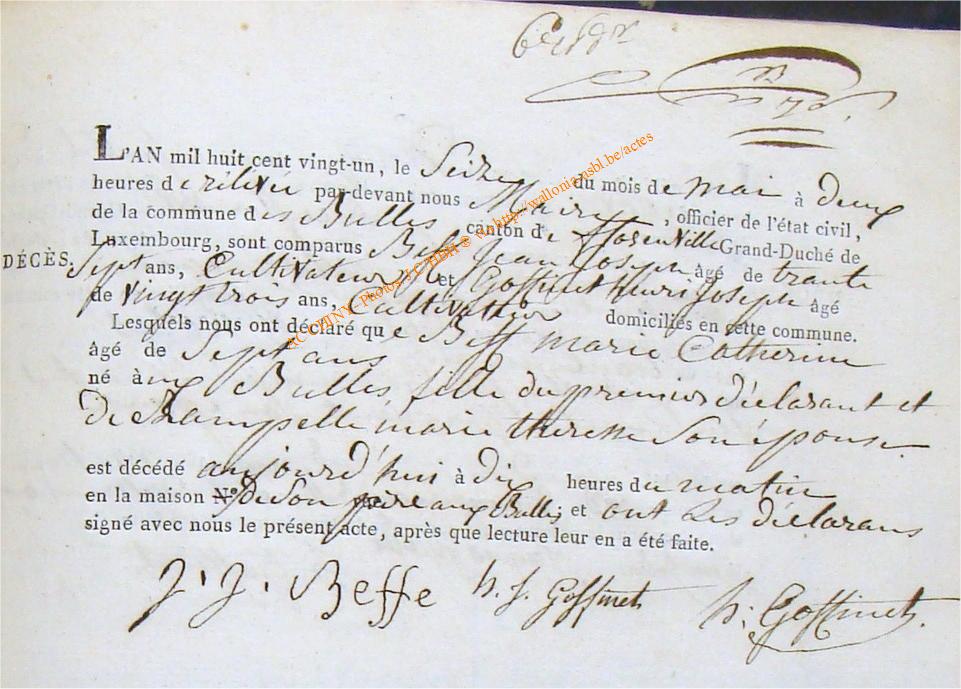 L'AN mil huit cent vingt-un, le Seize du mois de mai à deux
heures de relevée par-devant nous Maire, officier de l'état civil,
de la commune des Bulles canton de florenville Grand-Duché de
Luxembourg, sont comparus Beff Jean Joseph âgé de trante
DÉCÈS.
Sept ans, Cultivateur et Goffinet henri Joseph âgé
de vingt trois ans, Cultivateur domiciliés en cette commune.
Lesquels nous ont déclaré que Beff marie Catherine
âgé de Sept ans
né à aux Bulles, fille du premier déclarant et
de marie theresse Son épouse
est décédé aujourd'hui à dix heures du matin
en la maison N° de Son père aux Bulles, et ont Les déclarans
signé avec nous le présent acte, après que lecture leur en a été faite.
J. J. Beffe h. J. Goffinet h: Goffinet.
ACCHINY Photos : CHBH @ http://wallonia.asbl.be/actes